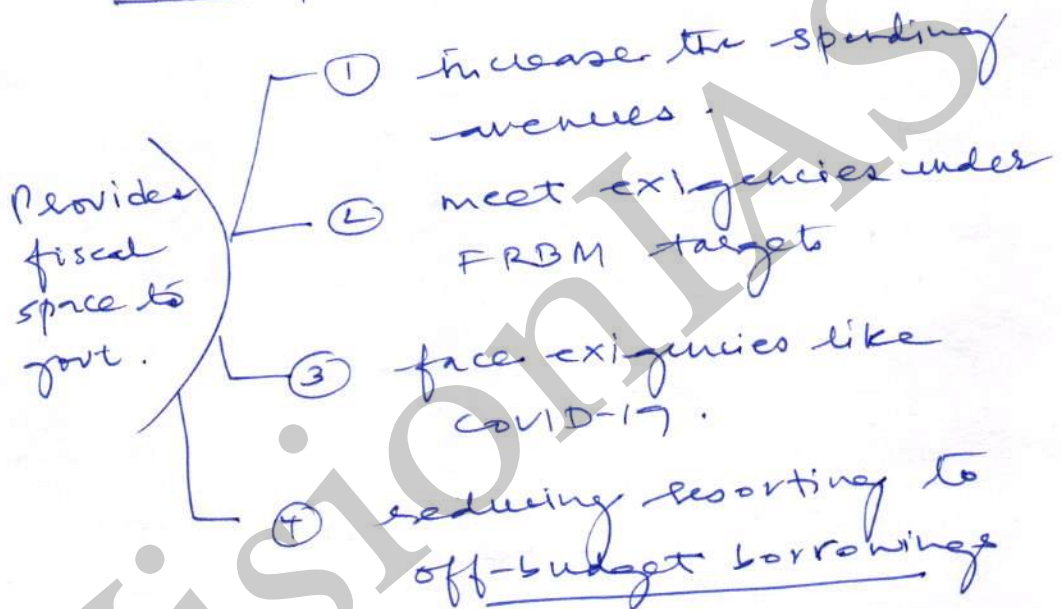 Provides
fiscal
space to
govt.
① increase the spending
avenues.
② meet exigencies under
FRBM targets
③ face exigencies like
COVID-19.
④ reducing resorting to
off-budget borrowings
VisionIAS